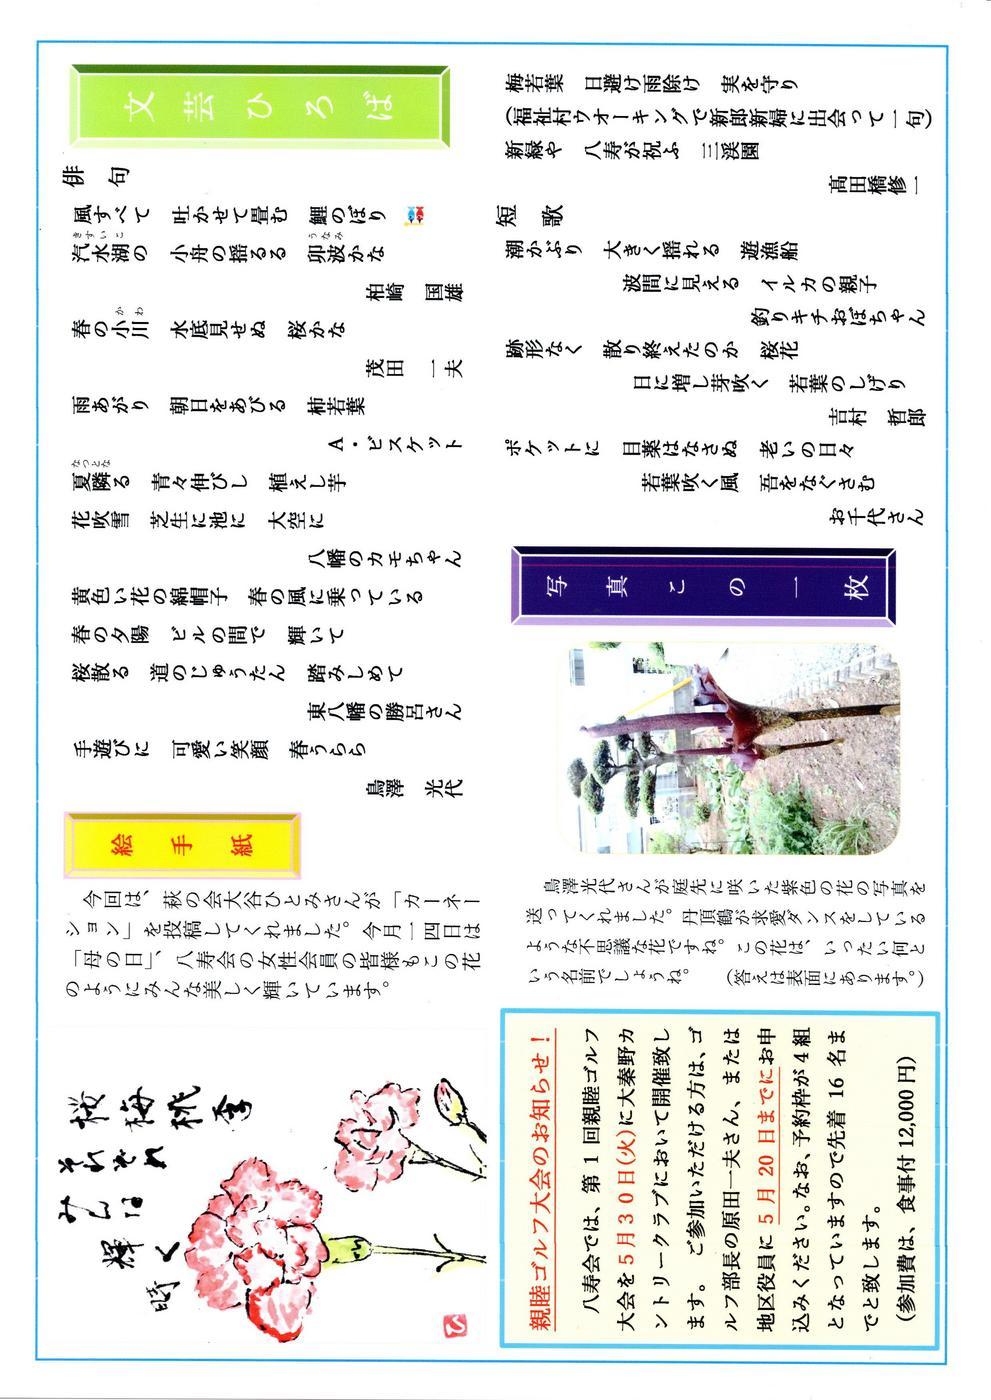 文芸ひろば
俳　句
風すべて　吐かせて畳む　鯉のぼり
汽水湖の　小舟の揺るる　卯波かな
きすいこ
うなみ
柏崎　国雄
春の小川　水底見せぬ　桜かな
かわ
茂田　一夫
雨あがり　朝日をあびる　柿若葉
A・ビスケット
夏隣る　青々伸びし　植えし芋
なつとな
花吹雪　芝生に池に　大空に
八幡のカモちゃん
黄色い花の綿帽子　春の風に乗っている
春の夕陽　ビルの間で　輝いて
桜散る　道のじゅうたん　踏みしめて
東八幡の勝呂さん
手遊びに　可愛い笑顔　春うらら
鳥澤　光代
梅若葉　日避け雨除け　実を守り
（福祉村ウオーキングで新郎新婦に出会って一句）
新緑や　八寿が祝ふ　三渓園
髙田橋修一
短　歌
潮かぶり　大きく揺れる　遊漁船
波間に見える　イルカの親子
釣りキチおぼちゃん
跡形なく　散り終えたのか　桜花
日に増し芽吹く　若葉のしげり
吉村　哲郎
ポケットに　目薬はなさぬ　老いの日々
若葉吹く風　吾をなぐさむ
お千代さん
絵手紙
今回は、萩の会大谷ひとみさんが「カーネー
ション」を投稿してくれました。今月一四日は
「母の日」、八寿会の女性会員の皆様もこの花
のようにみんな美しく輝いています。
桜梅桃李
それぞれ
みんな
輝く
時
ひ
写真この一枚
鳥澤光代さんが庭先に咲いた紫色の花の写真を
送ってくれました。丹頂鶴が求愛ダンスをしている
ような不思議な花ですね。この花は、いったい何と
いう名前でしょうね。　（答えは表面にあります。）
親睦ゴルフ大会のお知らせ！
八寿会では、第 1 回親睦ゴルフ
大会を 5 月 3 0 日(火)に大秦野カ
ントリークラブにおいて開催致し
ます。 ご参加いただける方は、ゴ
ルフ部長の原田一夫さん、または
地区役員に 5 月 20 日までにお申
込みください。なお、予約枠が 4 組
となっていますので先着 16 名ま
でと致します。
（参加費は、食事付 12,000 円）